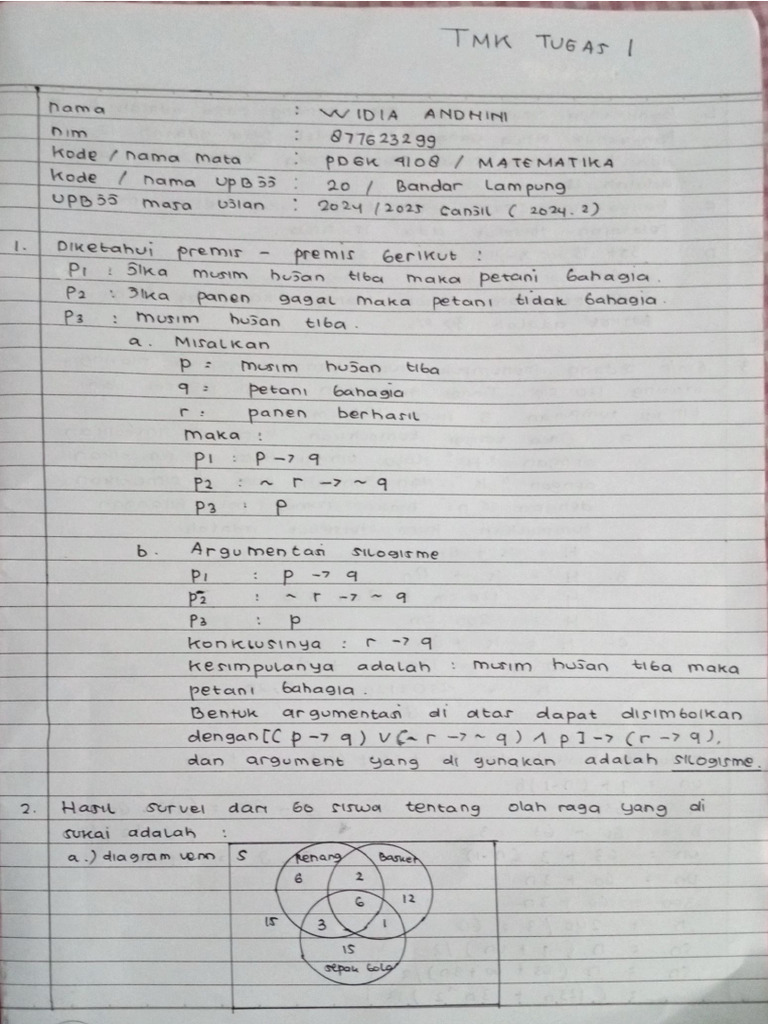 TMK TUGAS 1
nama : WIDIA ANDHINI
nim : 877623299
Kode / nama mata : PDGK 4108 / MATEMATIKA
Kode / nama UPBJJ : 20 / Bandar Lampung
UPBJJ masa Ujian : 2024/2025 Ganjil ( 2024.2)
1. Diketahui premis - premis berikut :
P1 : Jika musim hujan tiba maka petani bahagia.
P2 : Jika panen gagal maka petani tidak bahagia.
P3 : musim hujan tiba.
a. Misalkan
P = musim hujan tiba
q = petani bahagia
r = panen berhasil
maka :
P1 : P -> q
P2 : ~ r -> ~ q
P3 : P
b. Argumentasi silogisme
P1 : P -> q
P2 : ~ r -> ~ q
P3 : p
Konklusinya : r -> q
Kesimpulanya adalah : musim hujan tiba maka
petani bahagia.
Bentuk argumentasi di atas dapat disimbolkan
dengan [( p -> q ) ∨ (~ r -> ~ q ) ∧ p ] -> ( r -> q ).
dan argument yang di gunakan adalah silogisme.
2. Hasil survei dari 60 siswa tentang olah raga yang di
sukai adalah :
a.) diagram venn S Renang Basket
6 2
6 12
15 3 1
15
sepak bola